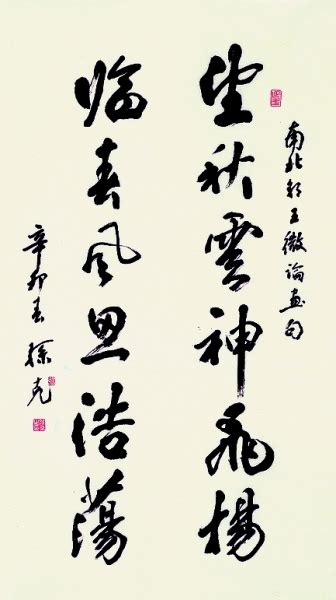 南北朝王微論畫句
望秋雲神飛揚
臨春風思浩蕩
辛卯春孫克